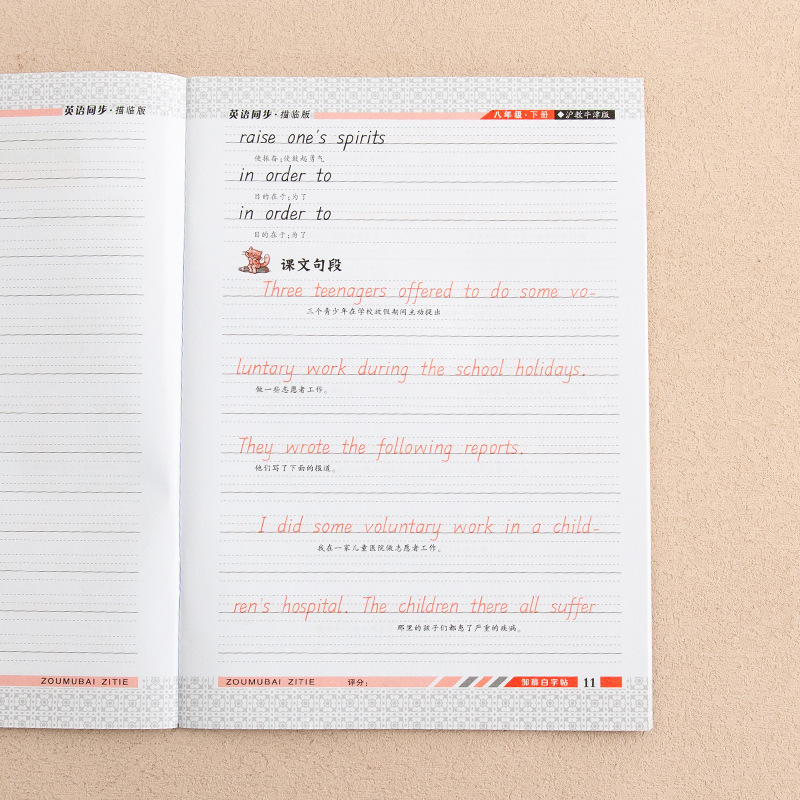 英语同步·描临版
ZOUMUBAI ZITIE
英语同步·描临版
八年级·下册 ◆沪教牛津版
raise one's spirits
使振奋;使鼓起勇气
in order to
目的在于;为了
in order to
目的在于;为了
课文句段
Three teenagers offered to do some vo-
三个青少年在学校放假期间主动提出
luntary work during the school holidays.
做一些志愿者工作。
They wrote the following reports.
他们写了下面的报道。
I did some voluntary work in a child-
我在一家儿童医院做志愿者工作。
ren's hospital. The children there all suffer
那里的孩子们都患了严重的疾病。
ZOUMUBAI ZITIE 评分: 邹慕白字帖 11